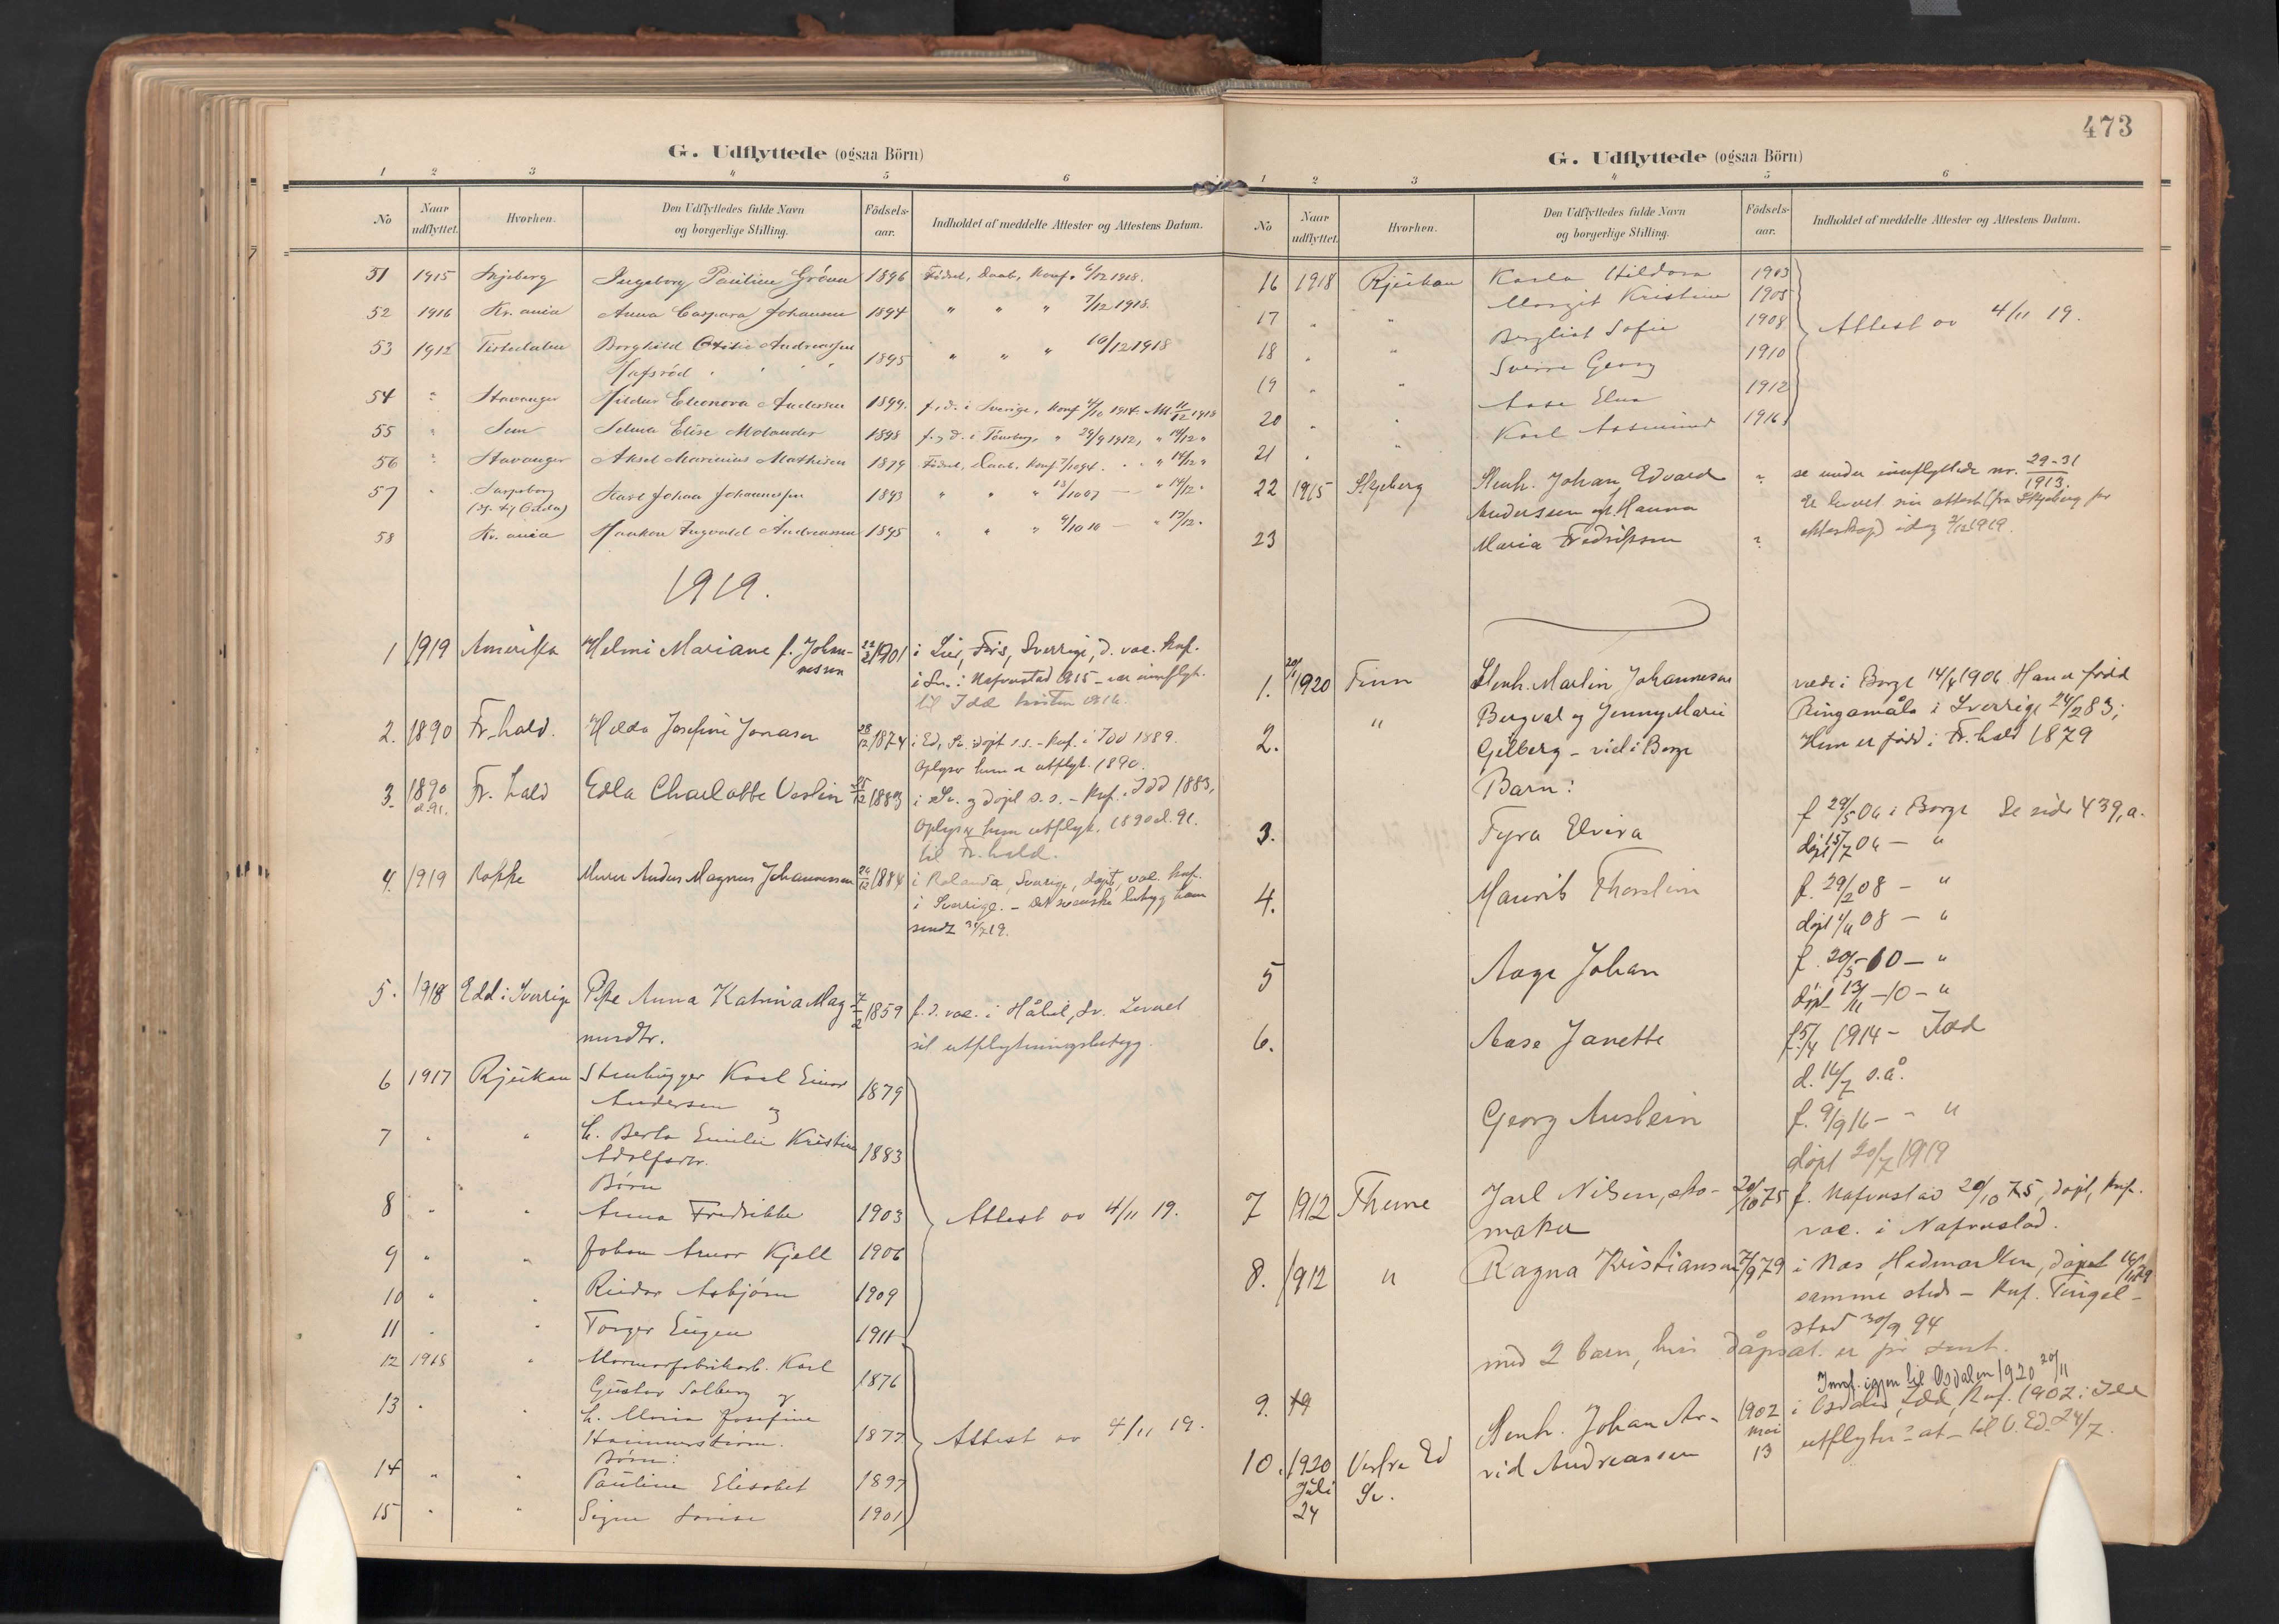 G. Udflyttede (ogsaa Börn)
1 2 3 4 5 6
No
Naar udflyttet.
Hvorhen.
Den Udflyttedes fulde Navn og borgerlige Stilling.
Födsels-aar.
Indholdet af meddelte Attester og Attestens Datum.
51 1915 Skjeberg Ingeborg Pauline Grönn 1896 Födsel, Daab, Konf. 6/12 1918.
52 1916 Kr.ania Anna Caspara Johansen 1894 " " " 7/12 1918.
53 1912 Tistedalen Borghild Otilie Andreassen
Hafsröd 1895 " " " 10/12 1918
54 " Stavanger Hildur Eleonora Andersen 1899. f. d. i Sverige, Konf 4/10 1914. Att 11/12 1918
55 " Sem Selma Elise Molander 1898 f. og d. i Tönsberg, " 29/9 1912, " 14/12 "
56 " Stavanger Aksel Marinius Mathisen 1879 Födsel, Daab, Konf 7/10 94. " " 14/12 "
57 " Sarpsborg Karl Johan Johannessen 1893 " " " 13/10 07 — " 14/12 "
58 Kr.ania Haakon Ingvald Andreassen 1895 " " " 9/10 10 — " 17/12 "
1919.
1 1919 Amerika Helmi Mariane f. Johan- 22/2 1901 i Lier, Fris, Sverrige, d. vac. Knf.
nessen i Sv. i Nafvnstad 1915 – var innflyt.
til Idd hösten 1916.
2. 1890 Fr.hald. Hilda Josefine Jonasen 28/12 1874 i Ed, Sv. döpt s.s. – Knf. i Idd 1889.
Oplyser hun er utflyt. 1890.
3. 1890 Fr. hald Edla Charlotte Veslin 25/12 1883 i Sv. og döpt s.s. – Knf. i Idd 1883,
el. 91. Oplyser hun utflyt. 1890 el. 91.
til Fr.hald.
4. 1919 Rakke Murer Anders Magnus Johannessen 26/12 1884 i Rolanda, Sverige, döpt, vac. knf.
i Sverrige. – Det svenske betyg ham
sendt 31/7 19.
5. 1918 Edd i Sverige Pike Anna Katrina Mag- 7/2 1859 f. d. vac. i Håbol, Sv. Leveret
nusdtr. sit utflytningsbetyg.
6 1917 Rjukan Stenhugger Karl Einar 1879
Andersen og
7 " " h. Berta Emilie Kristine
Adolfsdtr. 1883
Börn
8 " " Anna Fredrikke 1903 Attest av 4/11 19.
9 " " Johan Arnor Kjell 1906
10 " " Reidar Asbjörn 1909
11 " " Torger Eugen 1911
12 1918 " Marmorfabrikarb. Karl
Gustav Solberg og 1876
13 " h. Maria Josefine
Hammerström. 1877 Attest av 4/11 19.
Börn:
14 " " Pauline Elisabet 1897
15 " " Signe Lovise 1901
473
G. Udflyttede (ogsaa Börn)
1 2 3 4 5 6
No
Naar udflyttet.
Hvorhen.
Den Udflyttedes fulde Navn og borgerlige Stilling.
Födsels-aar.
Indholdet af meddelte Attester og Attestens Datum.
16 1918 Rjukan Karla Hildora 1903
17 " " Margit Kristine 1905
18 " " Bergliot Sofie 1908 Attest av 4/11 19.
19 " " Sverre Georg 1910
20 " " Aase Elna 1912
21 " " Karl Aasmund 1916
22 1915 Skjeberg Stenh. Johan Edvard " se under innflyttede nr. 29-31
Andersen og Hanna 1913.
De levert sin attest (fra Skjeberg for
23 Maria Fredriksen " ekteskap) idag 9/12 1919.
20/1
1. 1920 Finn Stenh. Martin Johannesen viede i Borge 14/4 1906 Han er född
2. " Bergval og Jenny Marie Ringamåla i Sverrige 24/2 83;
Gelberg – viet i Borge Hun er född i Fr. hald 1879
Barn:
3. Tyra Elvira f 29/5 06 i Borge Se side 439, a.
döpt 15/7 06 – "
4. Maurits Thorstein f. 29/2 08 – "
döpt 4/4 08 – "
5 Aage Johan f. 20/5 - 10 – "
döpt 13/11 – 10 – "
6. Aase Janette f. 5/4 1914 – Idd
d. 16/7 s.å.
Georg Austein f. 9/9 16 – – "
döpt 20/7 1919
7 1912 Thune Jarl Nilsen, sko- 20/10 75 f. Nafvnstad 20/10 75, döpt, knf.
maker vac. i Nafvnstad.
8. 1912 " Ragna Kristiansen 7/9 79 i Næs, Hedmarken, döpt 16/11 79
samme sted – Knf. Tingel-
stad 30/9 94
med 2 barn, hvis dåpsat. er före sendt.
Innfl. igjen til Osdalen 1920 20/11
9. 19
10. 1920 Vestre Ed Stenh. Johan Ar- 1902 i Osdalen, Idd, Knf. 1902 i Idd
Juli Sv. vid Andreassen mai utflytn. at – til V. Ed. 24/7.
24 13